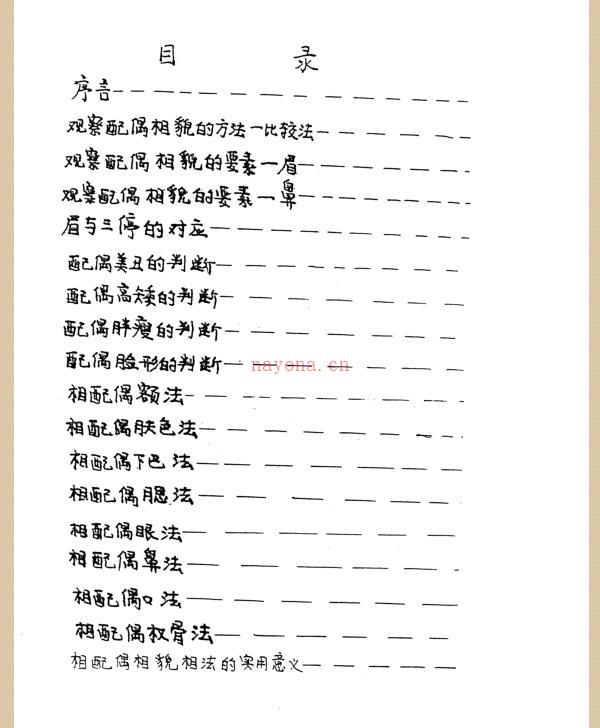 目 录
序言
观察配偶相貌的方法一比较法
观察配偶相貌的要素一眉
观察配偶相貌的要素一鼻
眉与三停的对应
配偶美丑的判断
配偶高矮的判断
配偶胖瘦的判断
配偶脸形的判断
nayona.cn
相配偶额法
相配偶肤色法
相配偶下巴法
相配偶腮法
相配偶眼法
相配偶鼻法
相配偶口法
相配偶权骨法
相配偶相貌相法的实用意义